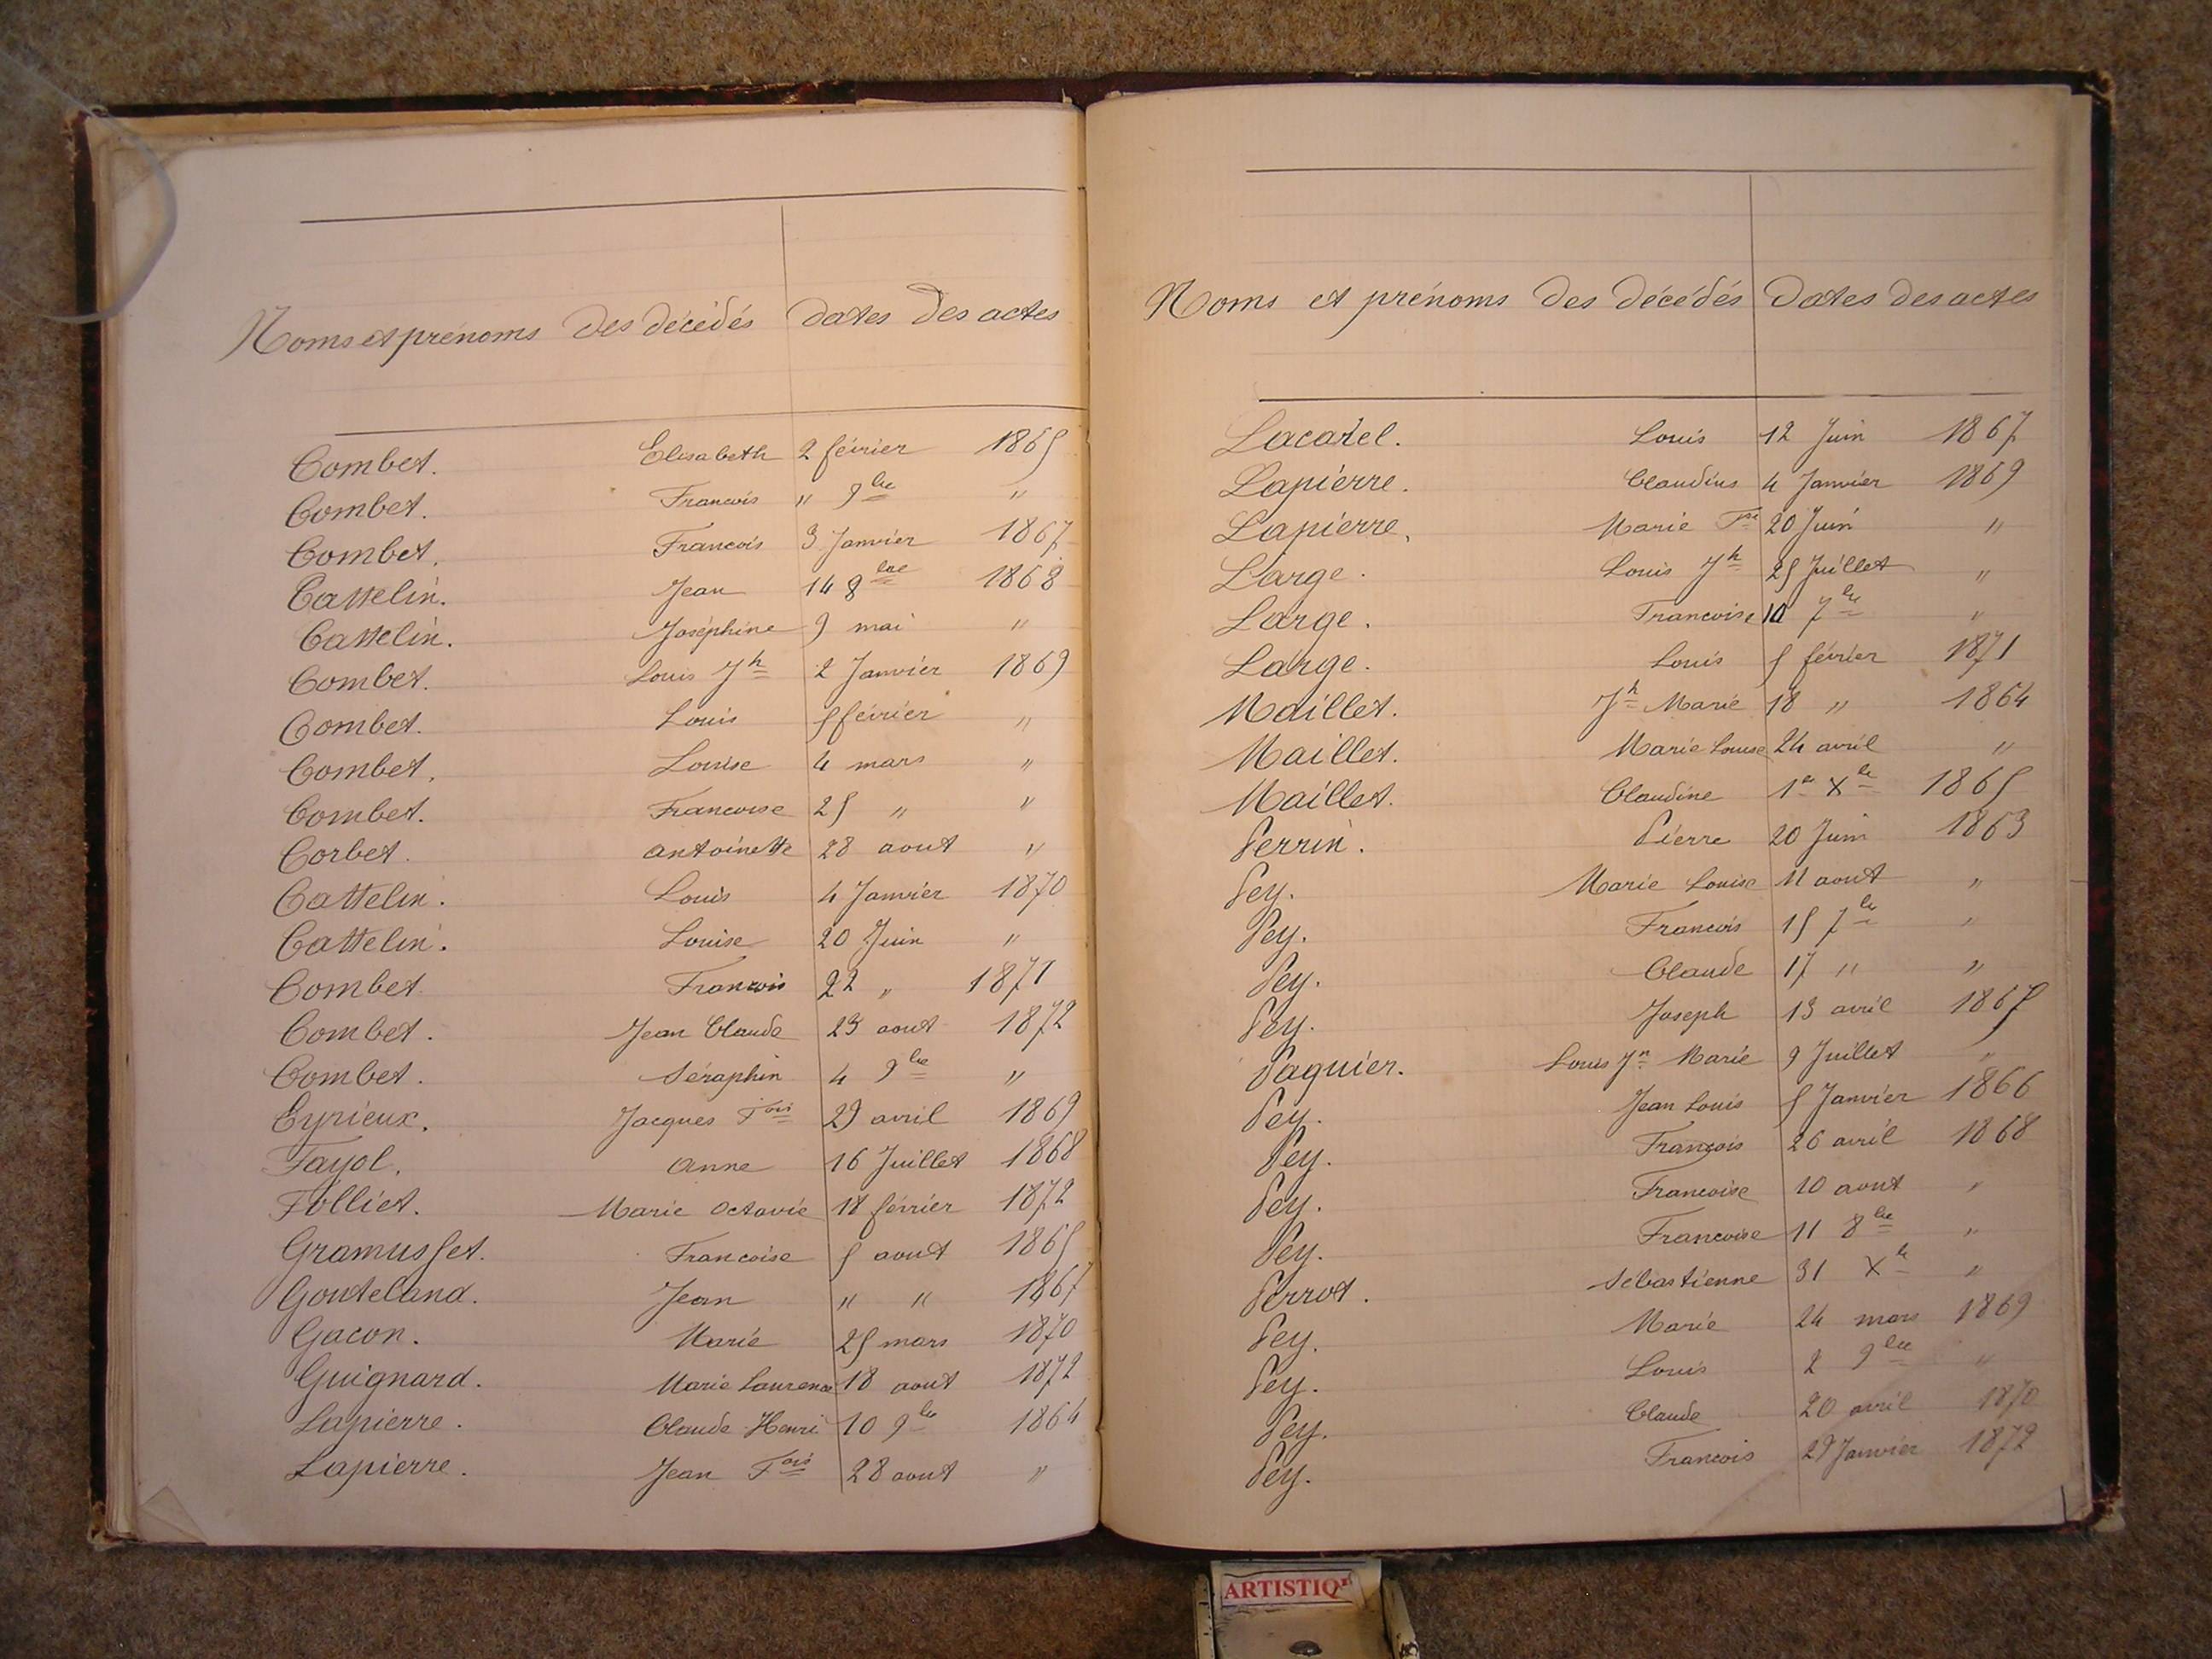 Noms et prénoms des décédés dates des actes
Combet. Elisabeth 2 février 1865
Combet. Francois " 9bre "
Combet. Francois 3 Janvier 1867
Cattelin. Jean 14 8bre 1868
Cattelin. Joséphine 9 mai "
Combet. Louis Jh 2 Janvier 1869
Combet. Louis 5 février "
Combet. Louise 4 mars "
Combet. Francoise 25 " "
Corbet. Antoinette 28 aout "
Cattelin. Louis 4 Janvier 1870
Cattelin. Louise 20 Juin "
Combet Francois 22 " 1871
Combet. Jean Claude 23 aout 1872
Combet. Séraphin 4 9bre "
Eyrieux. Jacques Fois 29 avril 1869
Fayol. Anne 16 Juillet 1868
Folliet. Marie Octavie 18 février 1872
Gramusset. Francoise 5 aout 1865
Gouteland. Jean " " 1867
Gacon. Marie 25 mars 1870
Guignard. Marie Laurence 18 aout 1872
Lapierre. Claude Henri 10 9bre 1864
Lapierre. Jean Fois 28 aout "
Noms et prénoms des décédés Dates des actes
Lacatel. Louis 12 Juin 1867
Lapierre. Claudius 4 Janvier 1869
Lapierre. Marie 20 Juin "
Large. Louis Jh 25 Juillet "
Large. Francoise 10 7bre "
Large. Louis 5 février 1871
Maillet. Jh Marie 18 " 1864
Maillet. Marie Louise 24 avril "
Maillet. Claudine 1er Xbre 1865
Perrin. Pierre 20 Juin 1863
Pey. Marie Louise 11 aout "
Pey. Francois 15 7bre "
Pey. Claude 17 " "
Pey. Joseph 13 avril
Paquier. Louis Jh Marie 9 Juillet "
Pey. Jean Louis 5 Janvier 1866
Pey. François 26 avril 1868
Pey. Francoise 10 aout "
Pey. Francoise 11 8bre "
Perrot. Sébastienne 31 Xbre "
Pey. Marie 24 mars 1869
Pey. Louis 2 9bre "
Pey. Claude 20 avril 1870
Pey. Francois 29 Janvier 1872
ARTISTIQ